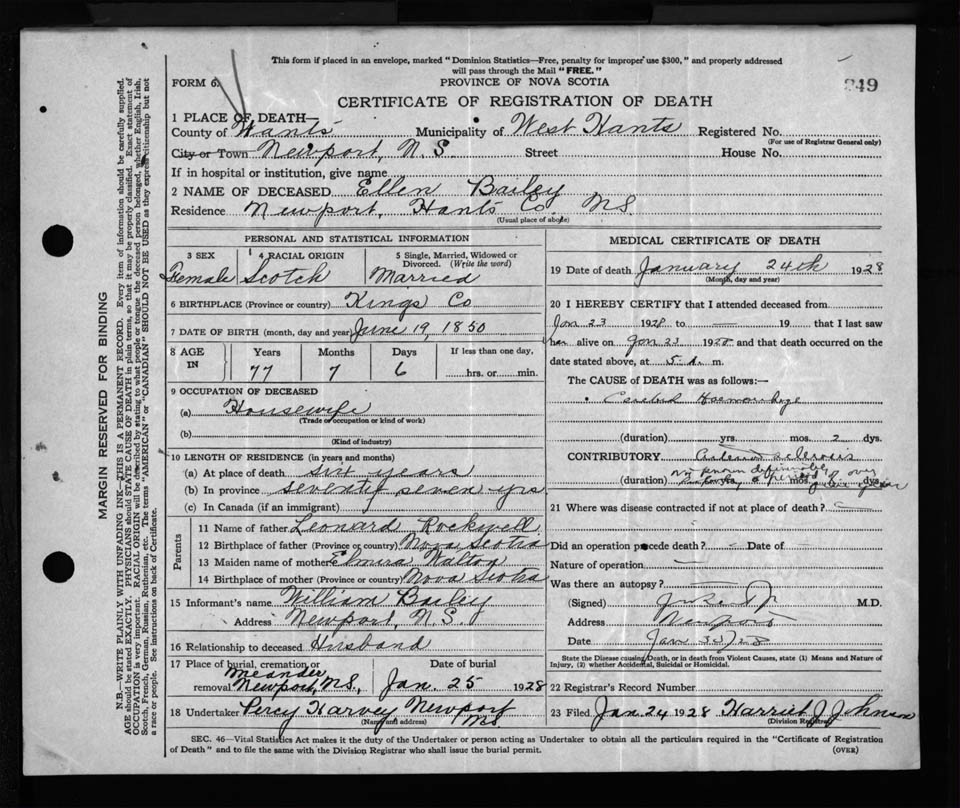 This form if placed in an envelope, marked "Dominion Statistics—Free, penalty for improper use $300," and properly addressed
will pass through the Mail "FREE."
FORM 6.
PROVINCE OF NOVA SCOTIA
349
CERTIFICATE OF REGISTRATION OF DEATH
1 PLACE OF DEATH—
County of Hants Municipality of West Hants Registered No.
(For use of Registrar General only)
City or Town Newport, N.S. Street House No.
If in hospital or institution, give name
2 NAME OF DECEASED Ellen Bailey
Residence Newport, Hants Co. N.S.
(Usual place of above)
PERSONAL AND STATISTICAL INFORMATION
3 SEX 4 RACIAL ORIGIN 5 Single, Married, Widowed or
Divorced. (Write the word)
Female Scotch Married
6 BIRTHPLACE (Province or country) Kings Co
7 DATE OF BIRTH (month, day and year) June 19, 1850
8 AGE IN Years Months Days If less than one day,
77 7 6 hrs. or min.
9 OCCUPATION OF DECEASED
(a) Housewife
(Trade or occupation or kind of work)
(b)
(Kind of industry)
10 LENGTH OF RESIDENCE (in years and months)
(a) At place of death six years
(b) In province seventy seven yrs
(c) In Canada (if an immigrant)
Parents
11 Name of father Leonard Rockwell
12 Birthplace of father (Province or country) Nova Scotia
13 Maiden name of mother Elmira Walton
14 Birthplace of mother (Province or country) Nova Scotia
15 Informant's name William Bailey
Address Newport, N.S.
16 Relationship to deceased Husband
17 Place of burial, cremation or Date of burial
Meander
removal Newport, N.S., Jan. 25 1928
18 Undertaker Percy Harvey Newport
N.S.
(Name and address)
MEDICAL CERTIFICATE OF DEATH
19 Date of death January 24th 1928
(Month, day and year)
20 I HEREBY CERTIFY that I attended deceased from
Jan 23 1928 to — 19 that I last saw
her alive on Jan 23 1928 and that death occurred on the
date stated above, at 5 A. m.
The CAUSE of DEATH was as follows:—
Cerebral Haemorrhage
(duration) yrs. mos. 2 dys.
CONTRIBUTORY Arterio sclerosis
no known definable
(duration) yrs. mos. dys. over
21 Where was disease contracted if not at place of death? —
Did an operation precede death? — Date of —
Nature of operation —
Was there an autopsy? —
(Signed) M.D.
Address Newport
Date Jan /28
State the Disease causing Death, or in death from Violent Causes, state (1) Means and Nature of
Injury, (2) whether Accidental, Suicidal or Homicidal.
22 Registrar's Record Number
23 Filed Jan. 24 1928 Harriet J Johnson
(Division Registrar)
SEC. 46—Vital Statistics Act makes it the duty of the Undertaker or person acting as Undertaker to obtain all the particulars required in the "Certificate of Registration
of Death" and to file the same with the Division Registrar who shall issue the burial permit.
(OVER)
MARGIN RESERVED FOR BINDING
N.B.—WRITE PLAINLY WITH UNFADING INK—THIS IS A PERMANENT RECORD. Every item of information should be carefully supplied.
AGE should be stated EXACTLY. PHYSICIANS should STATE CAUSE OF DEATH in plain terms, so that it may be properly classified. Exact statement of
OCCUPATION is very important. RACIAL ORIGIN will be described by stating to what people or tongue the deceased person belonged, whether English, Irish,
Scotch, French, German, Russian, Ruthenian, etc. The terms "AMERICAN" or "CANADIAN" SHOULD NOT BE USED as they express citizenship but not
a race or people. See instructions on back of Certificate.